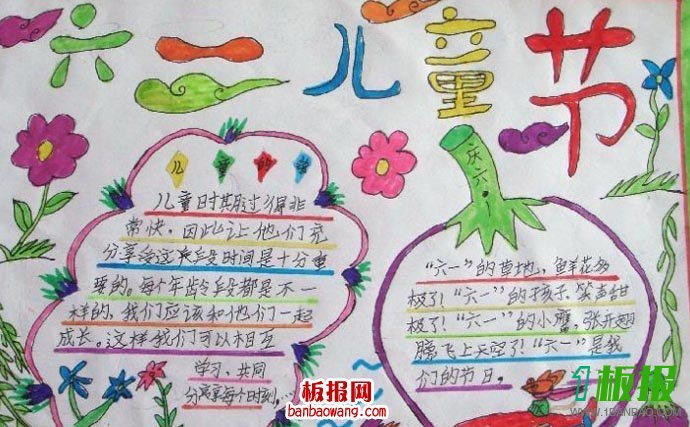 六一儿童节
庆六一
儿童时期过得非
常快，因此让他们充
分享受这个阶段时间是十分重
要的。每个年龄段都是不一
样的，我们应该和他们一起
成长。这样我们可以相互
学习、共同
分享每个时刻……
"六一"的草地，鲜花多
极了！"六一"的孩子，笑声甜
极了！"六一"的小鹰，张开翅
膀飞上天空了！"六一"是我
们的节日。
板报网
banbaowang.com
板报
WWW.1BANBAO.COM